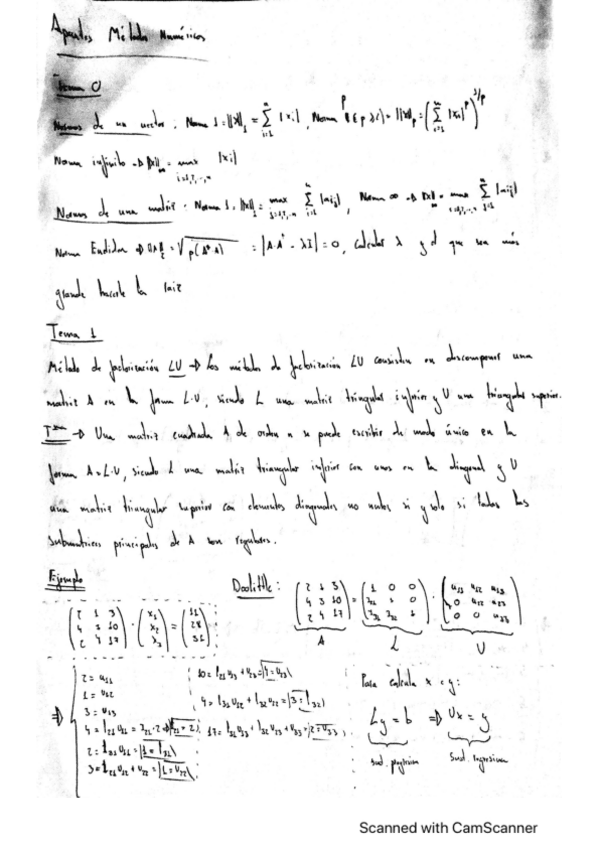 Apuntes Métodos Numéricos
Tema 0
Normas de un vector: Norma 1 = ||x||₁ = Σ |xi|, Norma p (1≤p≤∞) = ||x||p = (Σ |xi|^p)^1/p
Norma infinito → ||x||∞ = max |xi|
Normas de una matriz: Norma 1 = ||x||₁ = max Σ |aij|, Norma ∞ → ||x||∞ = max Σ |aij|
Norma Euclídea → ||A||₂ = √ρ(A*·A) = |A·A* - λI| = 0, calcular λ y el que sea más
grande hacerle la raiz
Tema 1
Método de factorización LU → Los métodos de factorización LU consisten en descomponer una
matriz A en la forma L·U, siendo L una matriz triangular inferior y U una triangular superior.
→ Una matriz cuadrada A de orden n se puede escribir de modo único en la
forma A=L·U, siendo L una matriz triangular inferior con unos en la diagonal y U
una matriz triangular superior con elementos diagonales no nulos si y solo si todas las
submatrices principales de A son regulares.
Ejemplo Doolittle:
(2 1 3) (x₁) (11) (2 1 3) (1 0 0) (u₁₁ u₁₂ u₁₃)
(4 3 10) · (x₂) = (28) (4 3 10) = (l₂₁ 1 0) · (0 u₂₂ u₂₃)
(2 4 17) (x₃) (31) (2 4 17) (l₃₁ l₃₂ 1) (0 0 u₃₃)
A L U
2 = u₁₁ 10 = l₂₁u₁₃ + u₂₃ = 4 = u₂₃
1 = u₁₂ 4 = l₃₁u₁₂ + l₃₂u₂₂ = 3 = l₃₂
3 = u₁₃ 17 = l₃₁u₁₃ + l₃₂u₂₃ + u₃₃ = 2 = u₃₃
4 = l₂₁u₁₁ = l₂₁·2 → l₂₁ = 2
2 = l₃₁u₁₁ = 1 = l₃₁
3 = l₂₁u₁₂ + u₂₂ = 1 = u₂₂
Para calcular x e y:
Ly = b ⇒ Ux = y
sust. progresiva sust. regresiva
Scanned with CamScanner